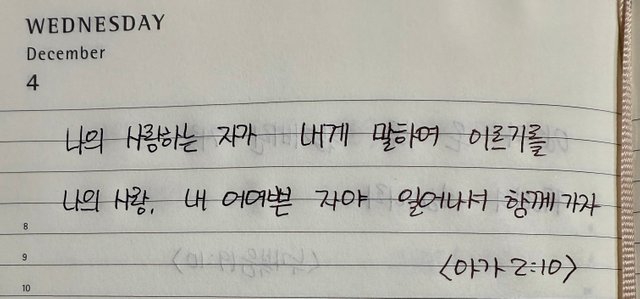 WEDNESDAY
December
4
나의 사랑하는 자가 내게 말하여 이르기를
나의 사랑, 내 어여쁜 자야 일어나서 함께 가자
8
9
<아가 2:10>
10